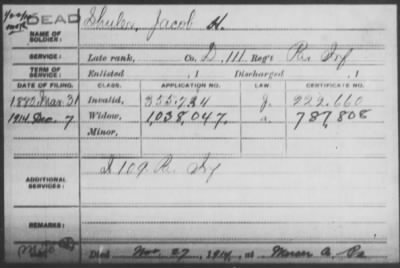 DEAD
NAME OF SOLDIER: Shuler, Jacob H.
SERVICE: Late rank, Co. D, 111 Reg't Pa Inf
TERM OF SERVICE: Enlisted , 1 Discharged , 1
DATE OF FILING. CLASS. APPLICATION NO. LAW. CERTIFICATE NO.
1880 Mar. 31 Invalid, 355.734 G. 222.660
1914 Dec. 7 Widow, 1,038,047. a. 787,808
Minor,
ADDITIONAL SERVICES: D 109 Pa Inf
REMARKS:
Died Nov. 27, 1914, at Mercer Pa